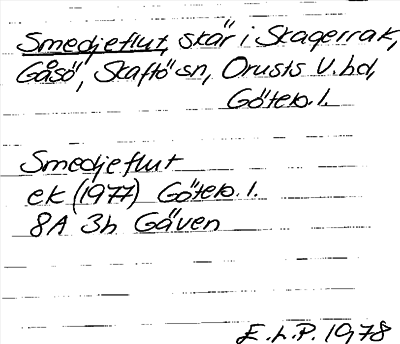 Smedjeflut, skär i Skagerrak,
Gåsö, Skaftö sn, Orusts V. hd,
Göteb. l.
Smedjeflut
ek (1977) Göteb. l.
8A 3h Gäven
E.L.P. 1978